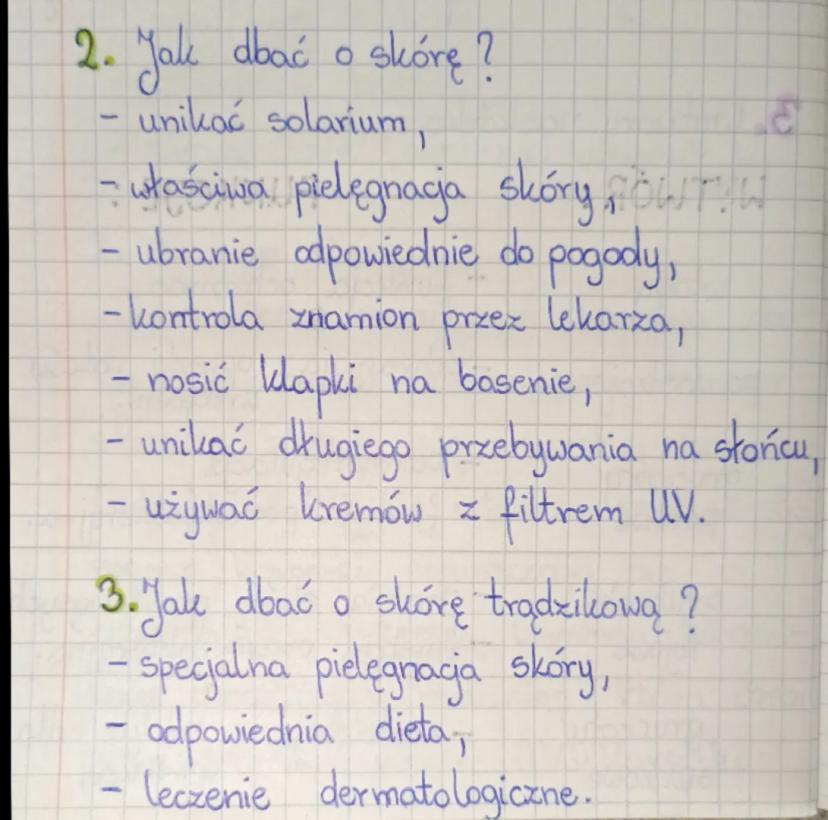 2. Jak dbać o skórę?
- unikać solarium,
- właściwa pielęgnacja skóry,
- ubranie odpowiednie do pogody,
- kontrola znamion przez lekarza,
- nosić klapki na basenie,
- unikać długiego przebywania na słońcu,
- używać kremów z filtrem UV.
3. Jak dbać o skórę trądzikową?
- specjalna pielęgnacja skóry,
- odpowiednia dieta,
- leczenie dermatologiczne.